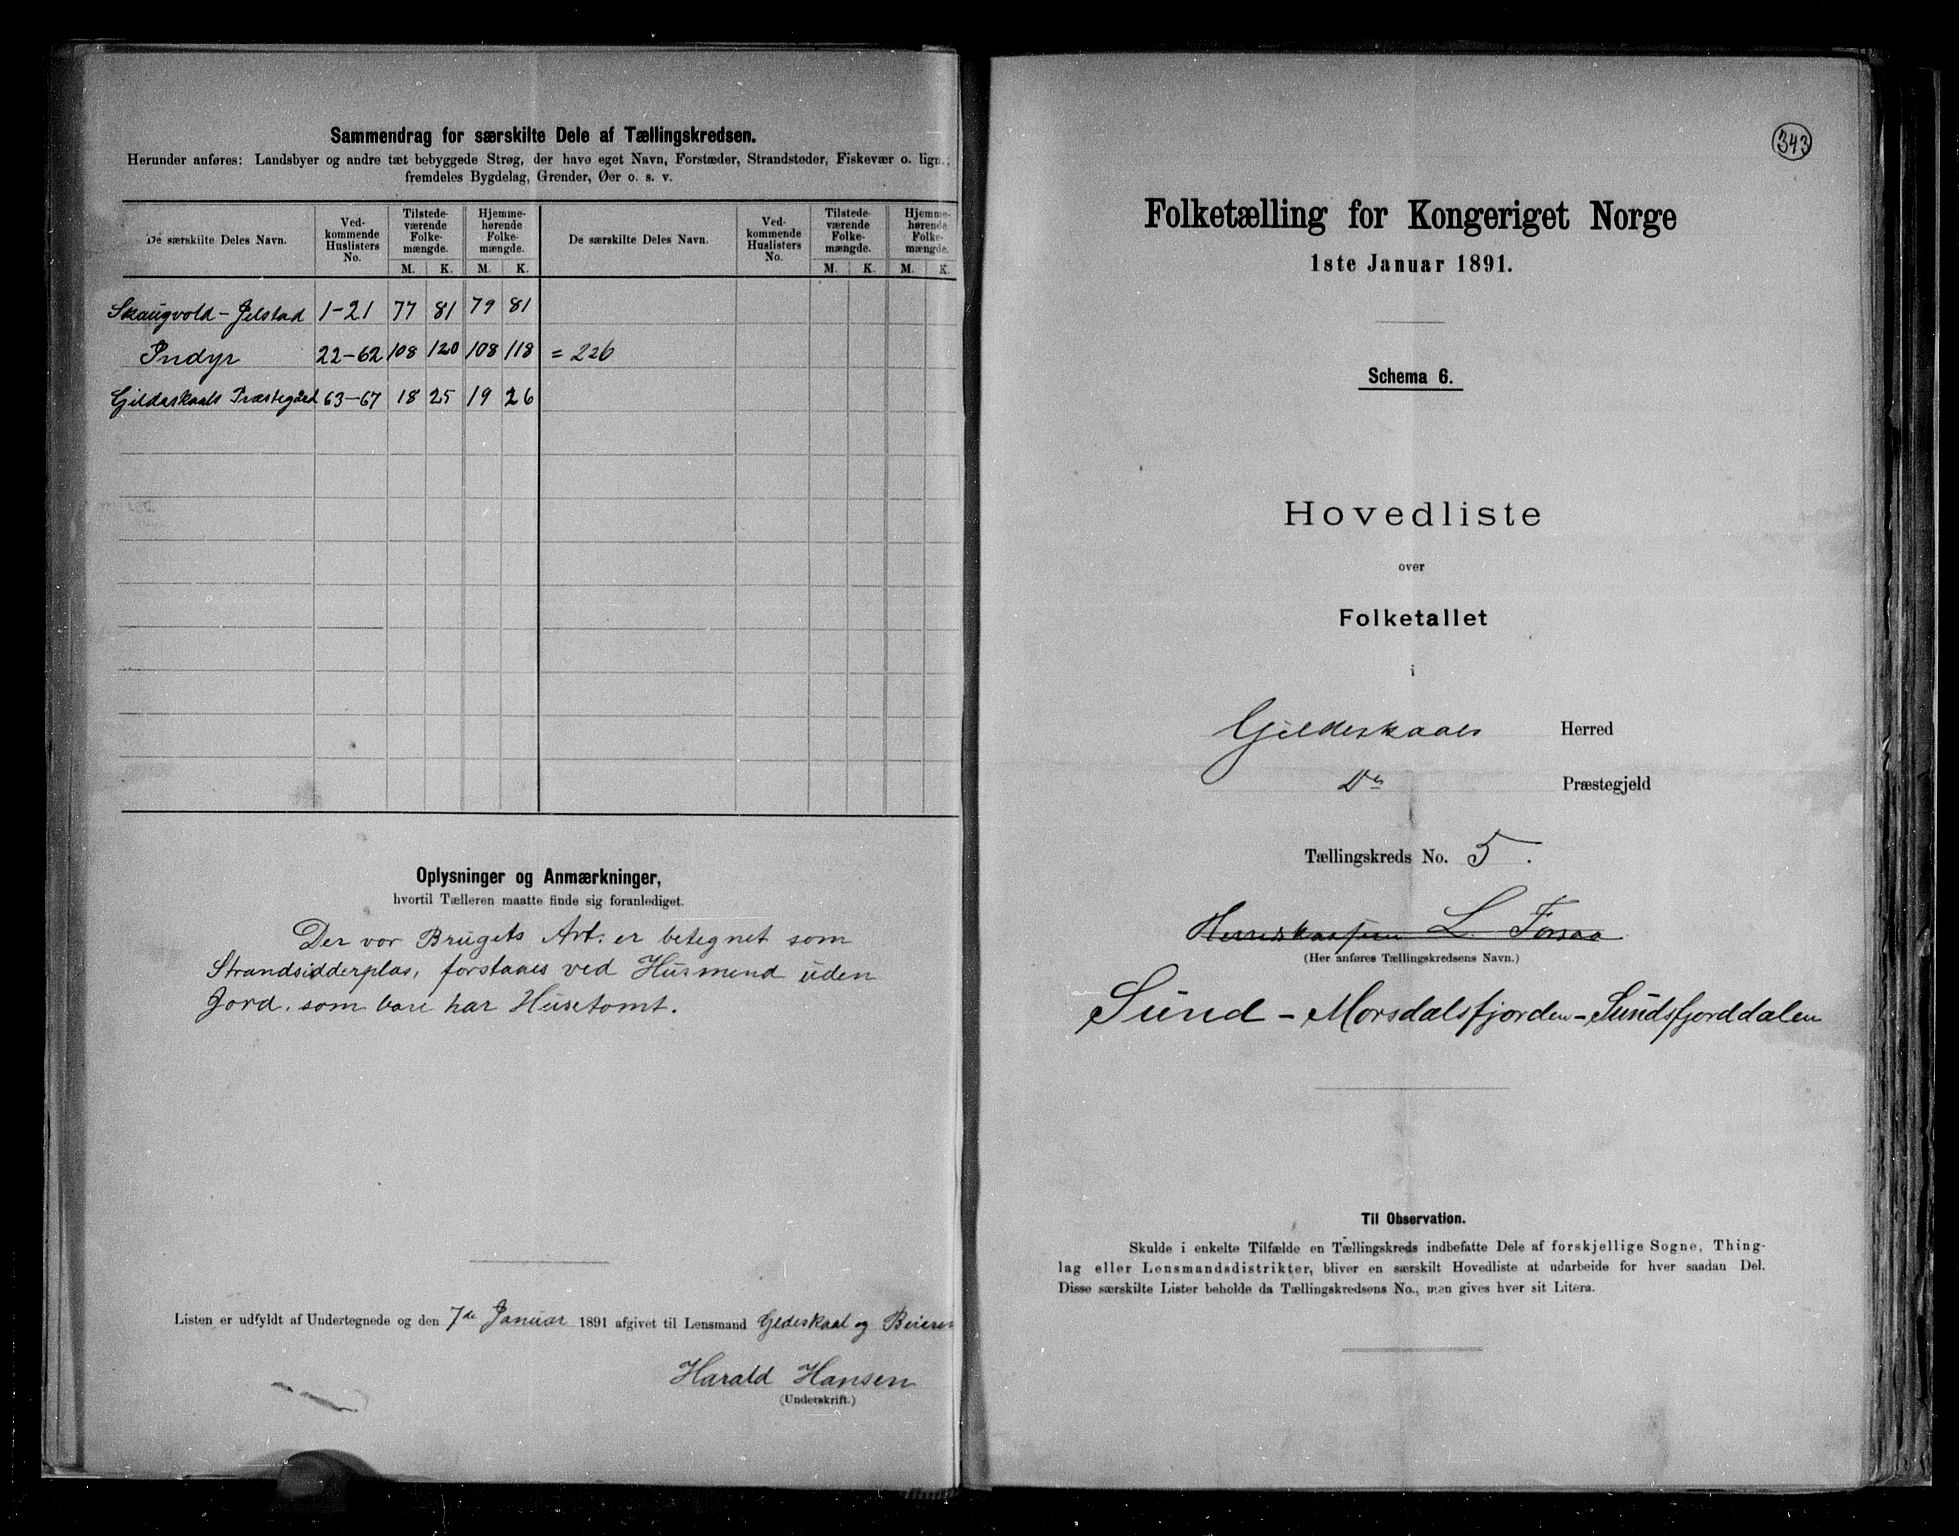 Sammendrag for særskilte Dele af Tællingskredsen.
Herunder anføres: Landsbyer og andre tæt bebyggede Strøg, der have eget Navn, Forstæder, Strandsteder, Fiskevær o. lign.;
fremdeles Bygdelag, Grender, Øer o. s. v.
De særskilte Deles Navn. Ved-kommende Huslisters No. Tilstede-værende Folke-mængde. Hjemme-hørende Folke-mængde. De særskilte Deles Navn. Ved-kommende Huslisters No. Tilstede-værende Folke-mængde. Hjemme-hørende Folke-mængde.
M. K. M. K. M. K. M. K.
Skaugvold - Jelstad 1-21 77 81 79 81
Indyr 22-62 108 120 108 118 = 226
Gildeskaals Præstegård 63-67 18 25 19 26
Oplysninger og Anmærkninger,
hvortil Tælleren maatte finde sig foranlediget.
Der vor Brugets Art. er betegnet som
Strandsidderplas, forstaaes ved Husmend uden
Jord, som bare har Husetomt.
Listen er udfyldt af Undertegnede og den 7de Januar 1891 afgivet til Lensmand Gildeskaal og Beieren
Harald Hansen
(Underskrift.)
343
Folketælling for Kongeriget Norge
1ste Januar 1891.
Schema 6.
Hovedliste
over
Folketallet
i
Gildeskaals Herred
Do Præstegjeld
Tællingskreds No. 5.
L. Forsaa
(Her anføres Tællingskredsens Navn.)
Sund - Morsdalsfjorden - Sundsfjorddalen
Til Observation.
Skulde i enkelte Tilfælde en Tællingskreds indbefatte Dele af forskjellige Sogne, Thing-
lag eller Lensmandsdistrikter, bliver en særskilt Hovedliste at udarbeide for hver saadan Del.
Disse særskilte Lister beholde da Tællingskredsens No., men gives hver sit Litera.